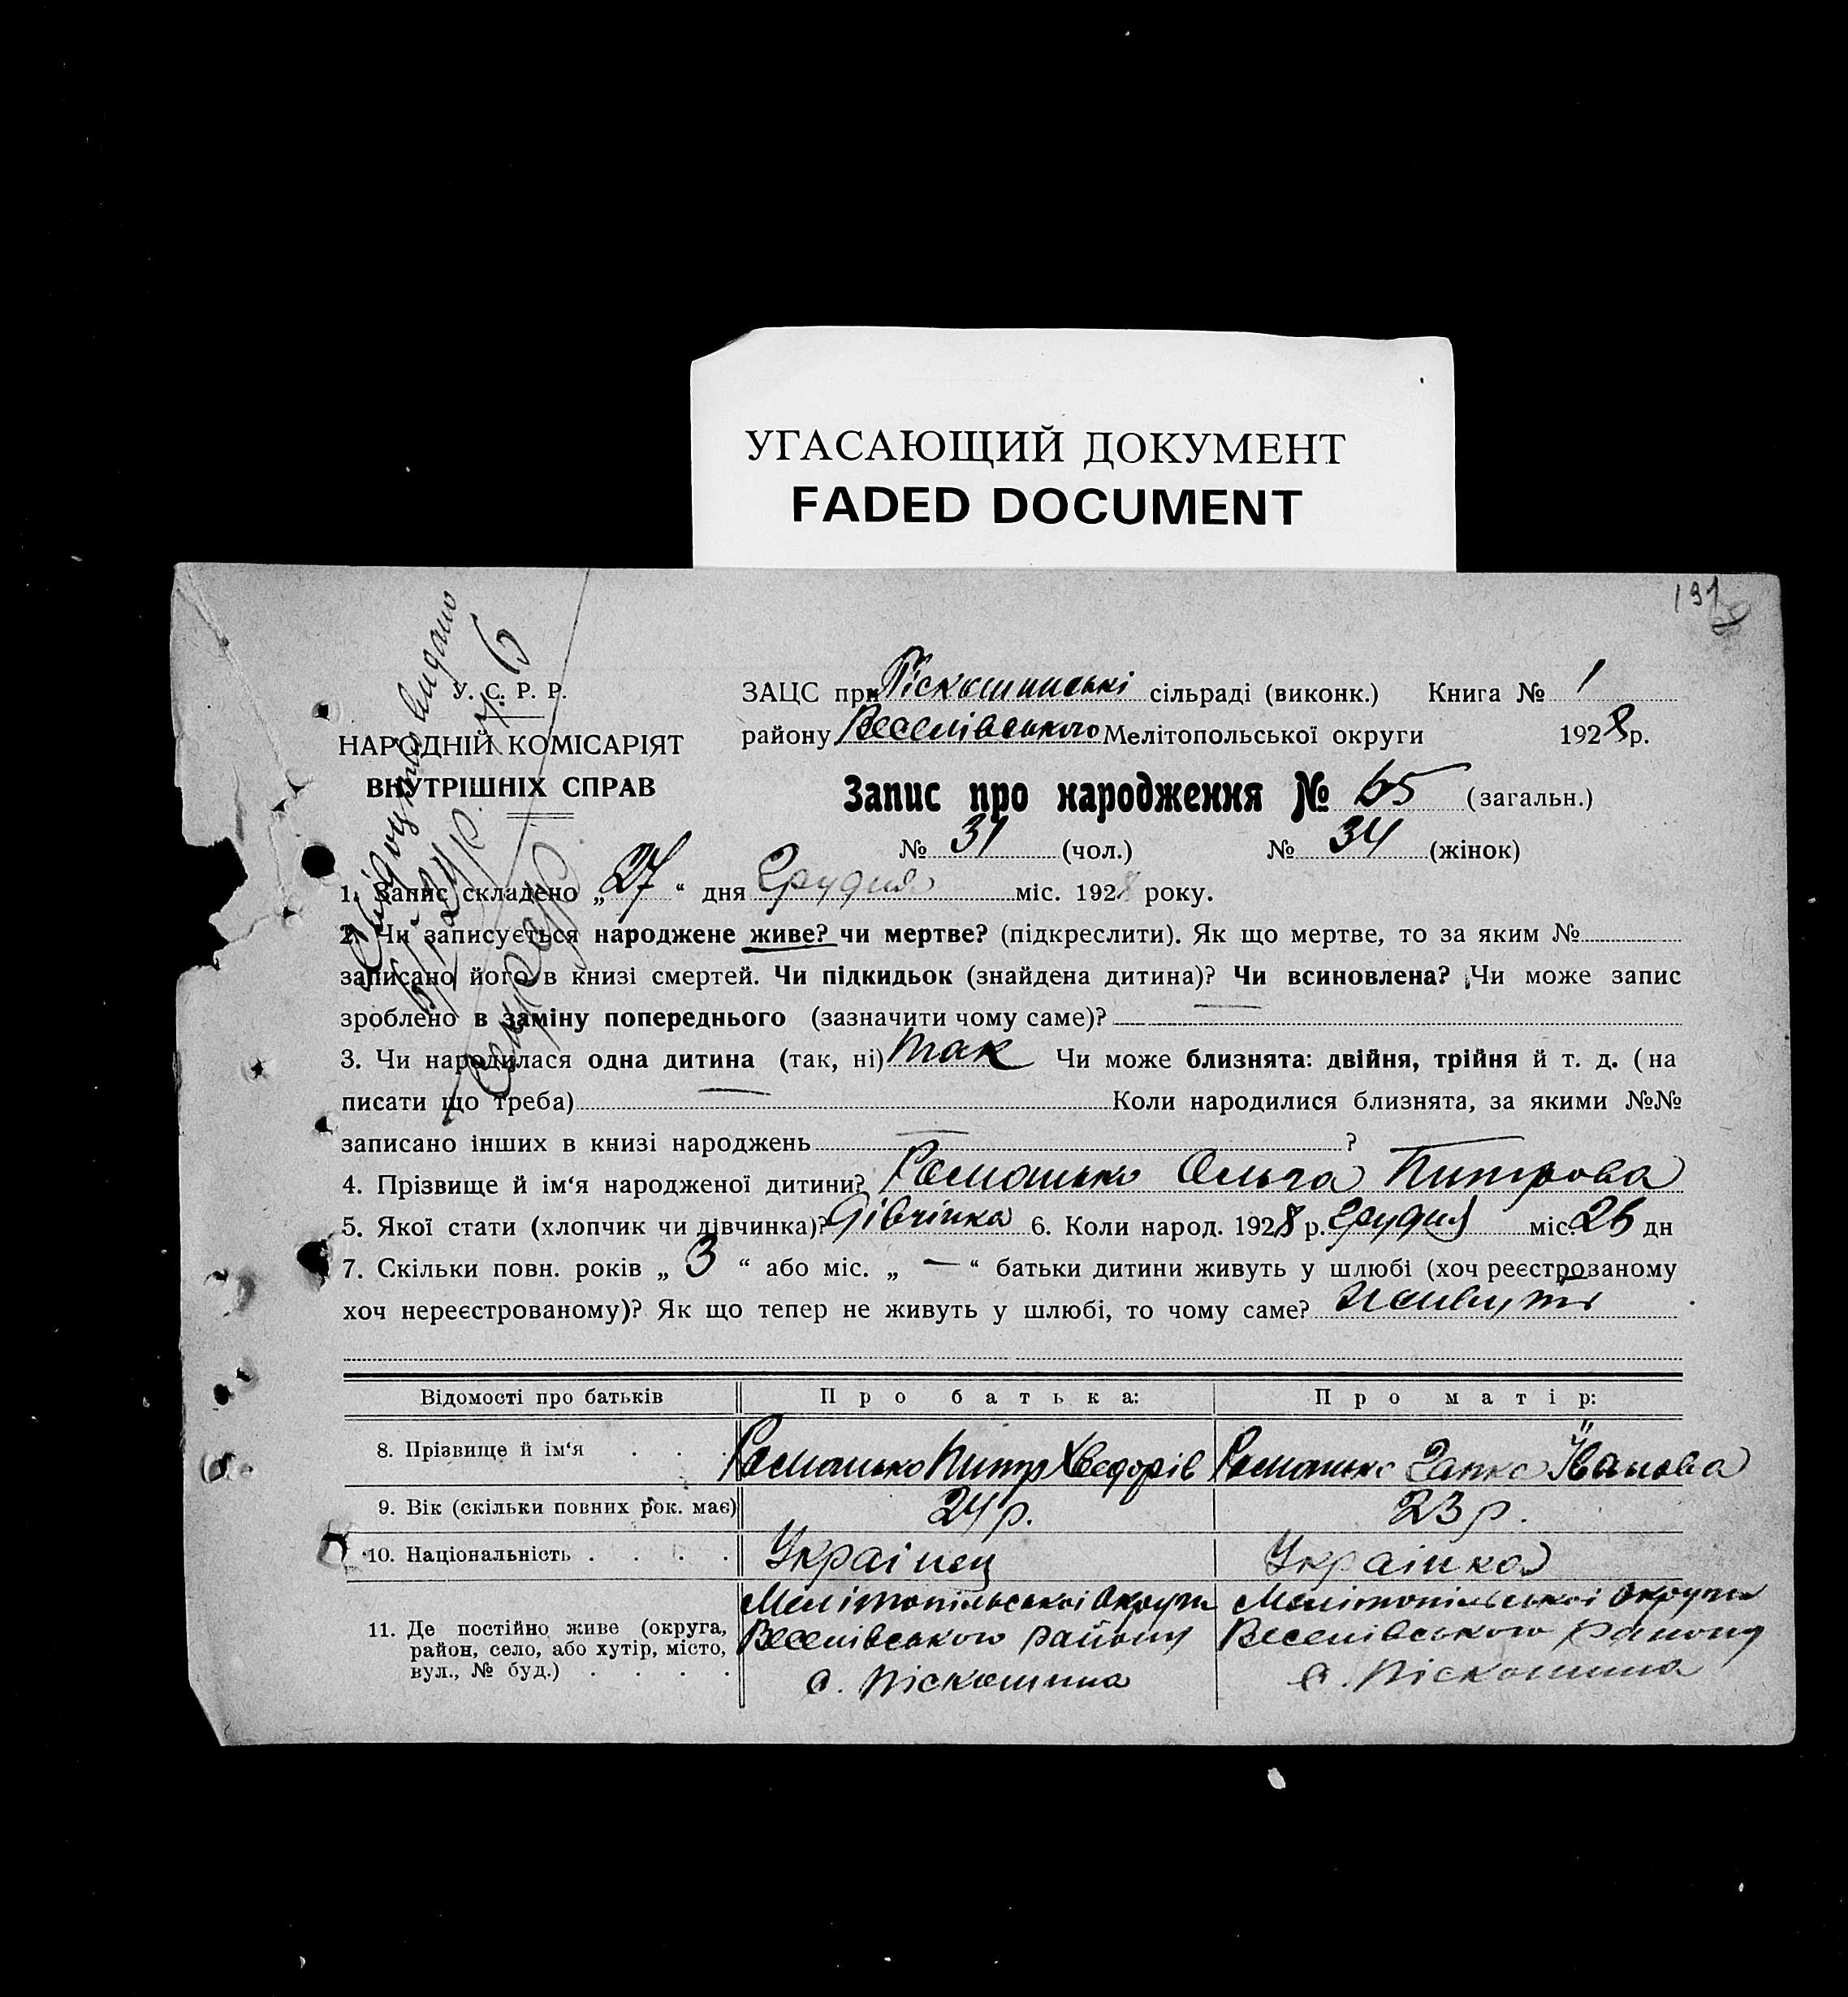 УГАСАЮЩИЙ ДОКУМЕНТ
FADED DOCUMENT
191
видано
У. С. Р. Р.
НАРОДНІЙ КОМІСАРІЯТ
ВНУТРІШНІХ СПРАВ
ЗАЦС при Піскошинські сільраді (виконк.) Книга № 1
району Веселівського Мелітопольської округи 1928 р.
Запис про народження № 65 (загальн.)
№ 31 (чол.) № 34 (жінок)
1. Запис складено „27“ дня Грудня міс. 1928 року.
2. Чи записується народжене живе? чи мертве? (підкреслити). Як що мертве, то за яким №
записано його в книзі смертей. Чи підкидьок (знайдена дитина)? Чи всиновлена? Чи може запис
зроблено в заміну попереднього (зазначити чому саме)? —
3. Чи народилася одна дитина (так, ні) так Чи може близнята: двійня, трійня й т. д. (на
писати що треба) — Коли народилися близнята, за якими №№
записано інших в книзі народжень — ?
4. Прізвище й ім‘я народженої дитини? Романько Ольга Питрова
5. Якої стати (хлопчик чи дівчинка)? Дівчінка 6. Коли народ. 1928 р. Грудня міс. 26 дн
7. Скільки повн. років „3“ або міс. „—“ батьки дитини живуть у шлюбі (хоч реєстрованому
хоч нереєстрованому)? Як що тепер не живуть у шлюбі, то чому саме?
Відомості про батьків Про батька: Про матір:
8. Прізвище й ім‘я . . . Романько Питр Хведорів Романько Ганна Іванова
9. Вік (скільки повних рок. має) 24 р. 23 р.
10. Національність . . . . Украінец Украінка
11. Де постійно живе (округа, район, село, або хутір, місто, вул., № буд.) . . . .
Мелітопільськоі Округи Мелітопільськоі Округи
Веселівського району Веселівського району
с. Піскошина с. Піскошина